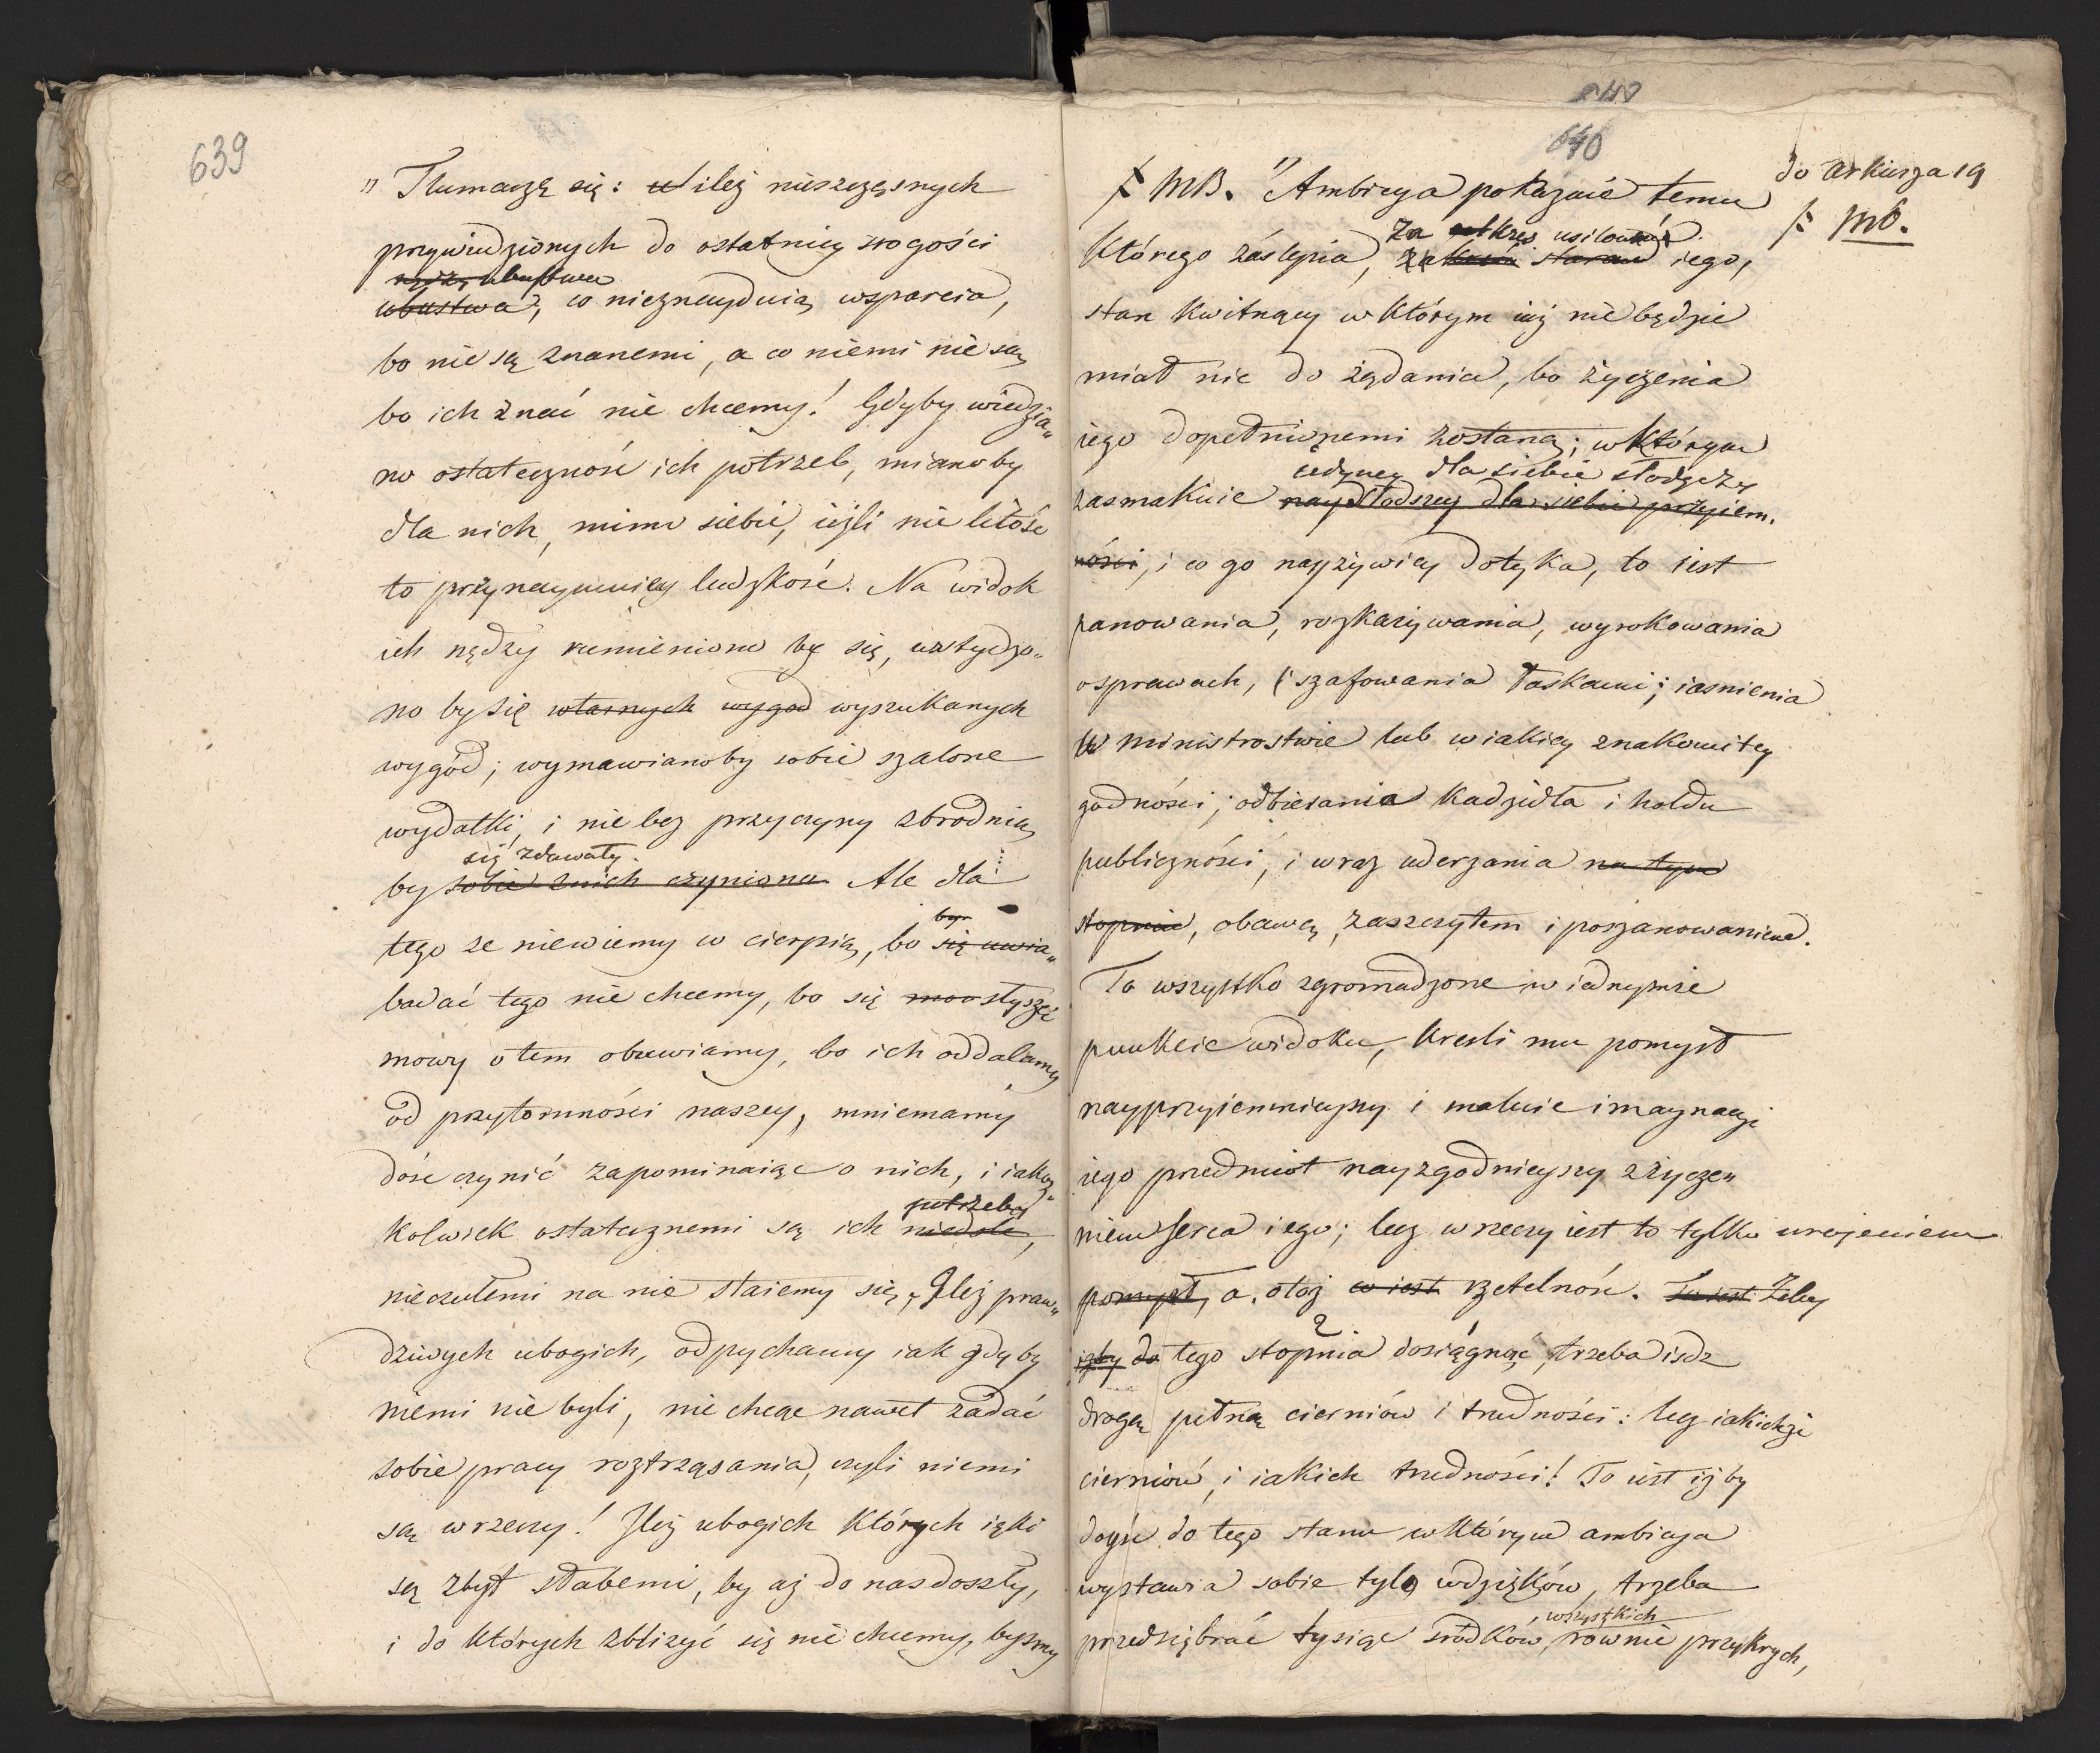 639
„ Tłumaczę się: w ileż nieszczęsnych
przywiedzionych do ostatniey srogości
nędzy, ubustwa
ubustwa, co nieznaydują wsparcia,
bo nie są znanemi, a co niemi nie są,
bo ich znać nie chcemy! Gdyby wiedzia„
no ostateczność ich potrzeb, mianoby
dla nich, mimo siebie, ieżli nie litość
to przynaymniey ludzkość. Na widok
ich nędzy rumieniono by się, wstydzo„
no by się własnych wygod wyszukanych
wygód; wymawianoby sobie szalone
wydatki, i nie bez przyczyny zbrodnią
się zdawały.
by sobie z nich czyniono. Ale dla
tego ze niewiemy co cierpią, bo się uwia„
by
badać tego nie chcemy, bo się mow słyszeć
mowy o tem obawiamy, bo ich oddalamy
od przytomności naszey, mniemamy
dość czynić zapominaiąc o nich, i iakoż„
potrzeby
kolwiek ostatecznemi są ich niedole,
nieczułemi na nie staiemy się. Ileż praw„
dziwych ubogich, odpychamy iak gdyby
niemi nie byli, nie chcąc nawet zadać
sobie pracy roztrząsania, czyli niemi
są w rzeczy! Ileż ubogich których ięki
są zbyt słabemi, by aż do nas doszły,
i do których zbliżyć się nie chcemy, byśmy
640
do arkusza 19
MB.
MB. "Ambicya pokazuie temu
za okres usiłowań
którego zaślepia, za starań iego,
stan kwitnący w którym iuż nie będzie
miał nic do żądania, bo życzenia
iego dopełnionemi zostaną; w którym
iedyney dla siebie słodyczy
zasmakuie naysłodszey dla siebie przyiem.
ności, i co go nayżywiey dotyka, to iest
panowania, rozkazywania, wyrokowania
o sprawach, i szafowania łaskami; iasnienia
w ministrostwie lub w iakiey znakomitey
godności; odbierania kadzidła i hołdu
publiczności, i wraz uderzania na tym
stopniu, obawą, zaszczytem i poszanowaniem.
To wszystko zgromadzone w iednymże
punkcie widoku, kreśli mu pomysł
nayprzyiemnieyszy i maluie imaynacyi
iego przedmiot nayzgodnieyszy z życze„
niem serca iego; lecz w rzeczy iest to tylko urojeniem
pomysł, a otóż co iest rzetelność. To iest Zeby
iżby do tego stopnia dosiągnąć, trzeba isdz
2
drogą pełną cierniów i trudności: lecz iakichże
cierniów, i iakich trudności! To iest iżby
doyść do tego stanu w którym ambicya
wystawia sobie tyle wdzięków, trzeba
wszystkich
przedsiębrać tysiąc srodków, rownie przykrych,